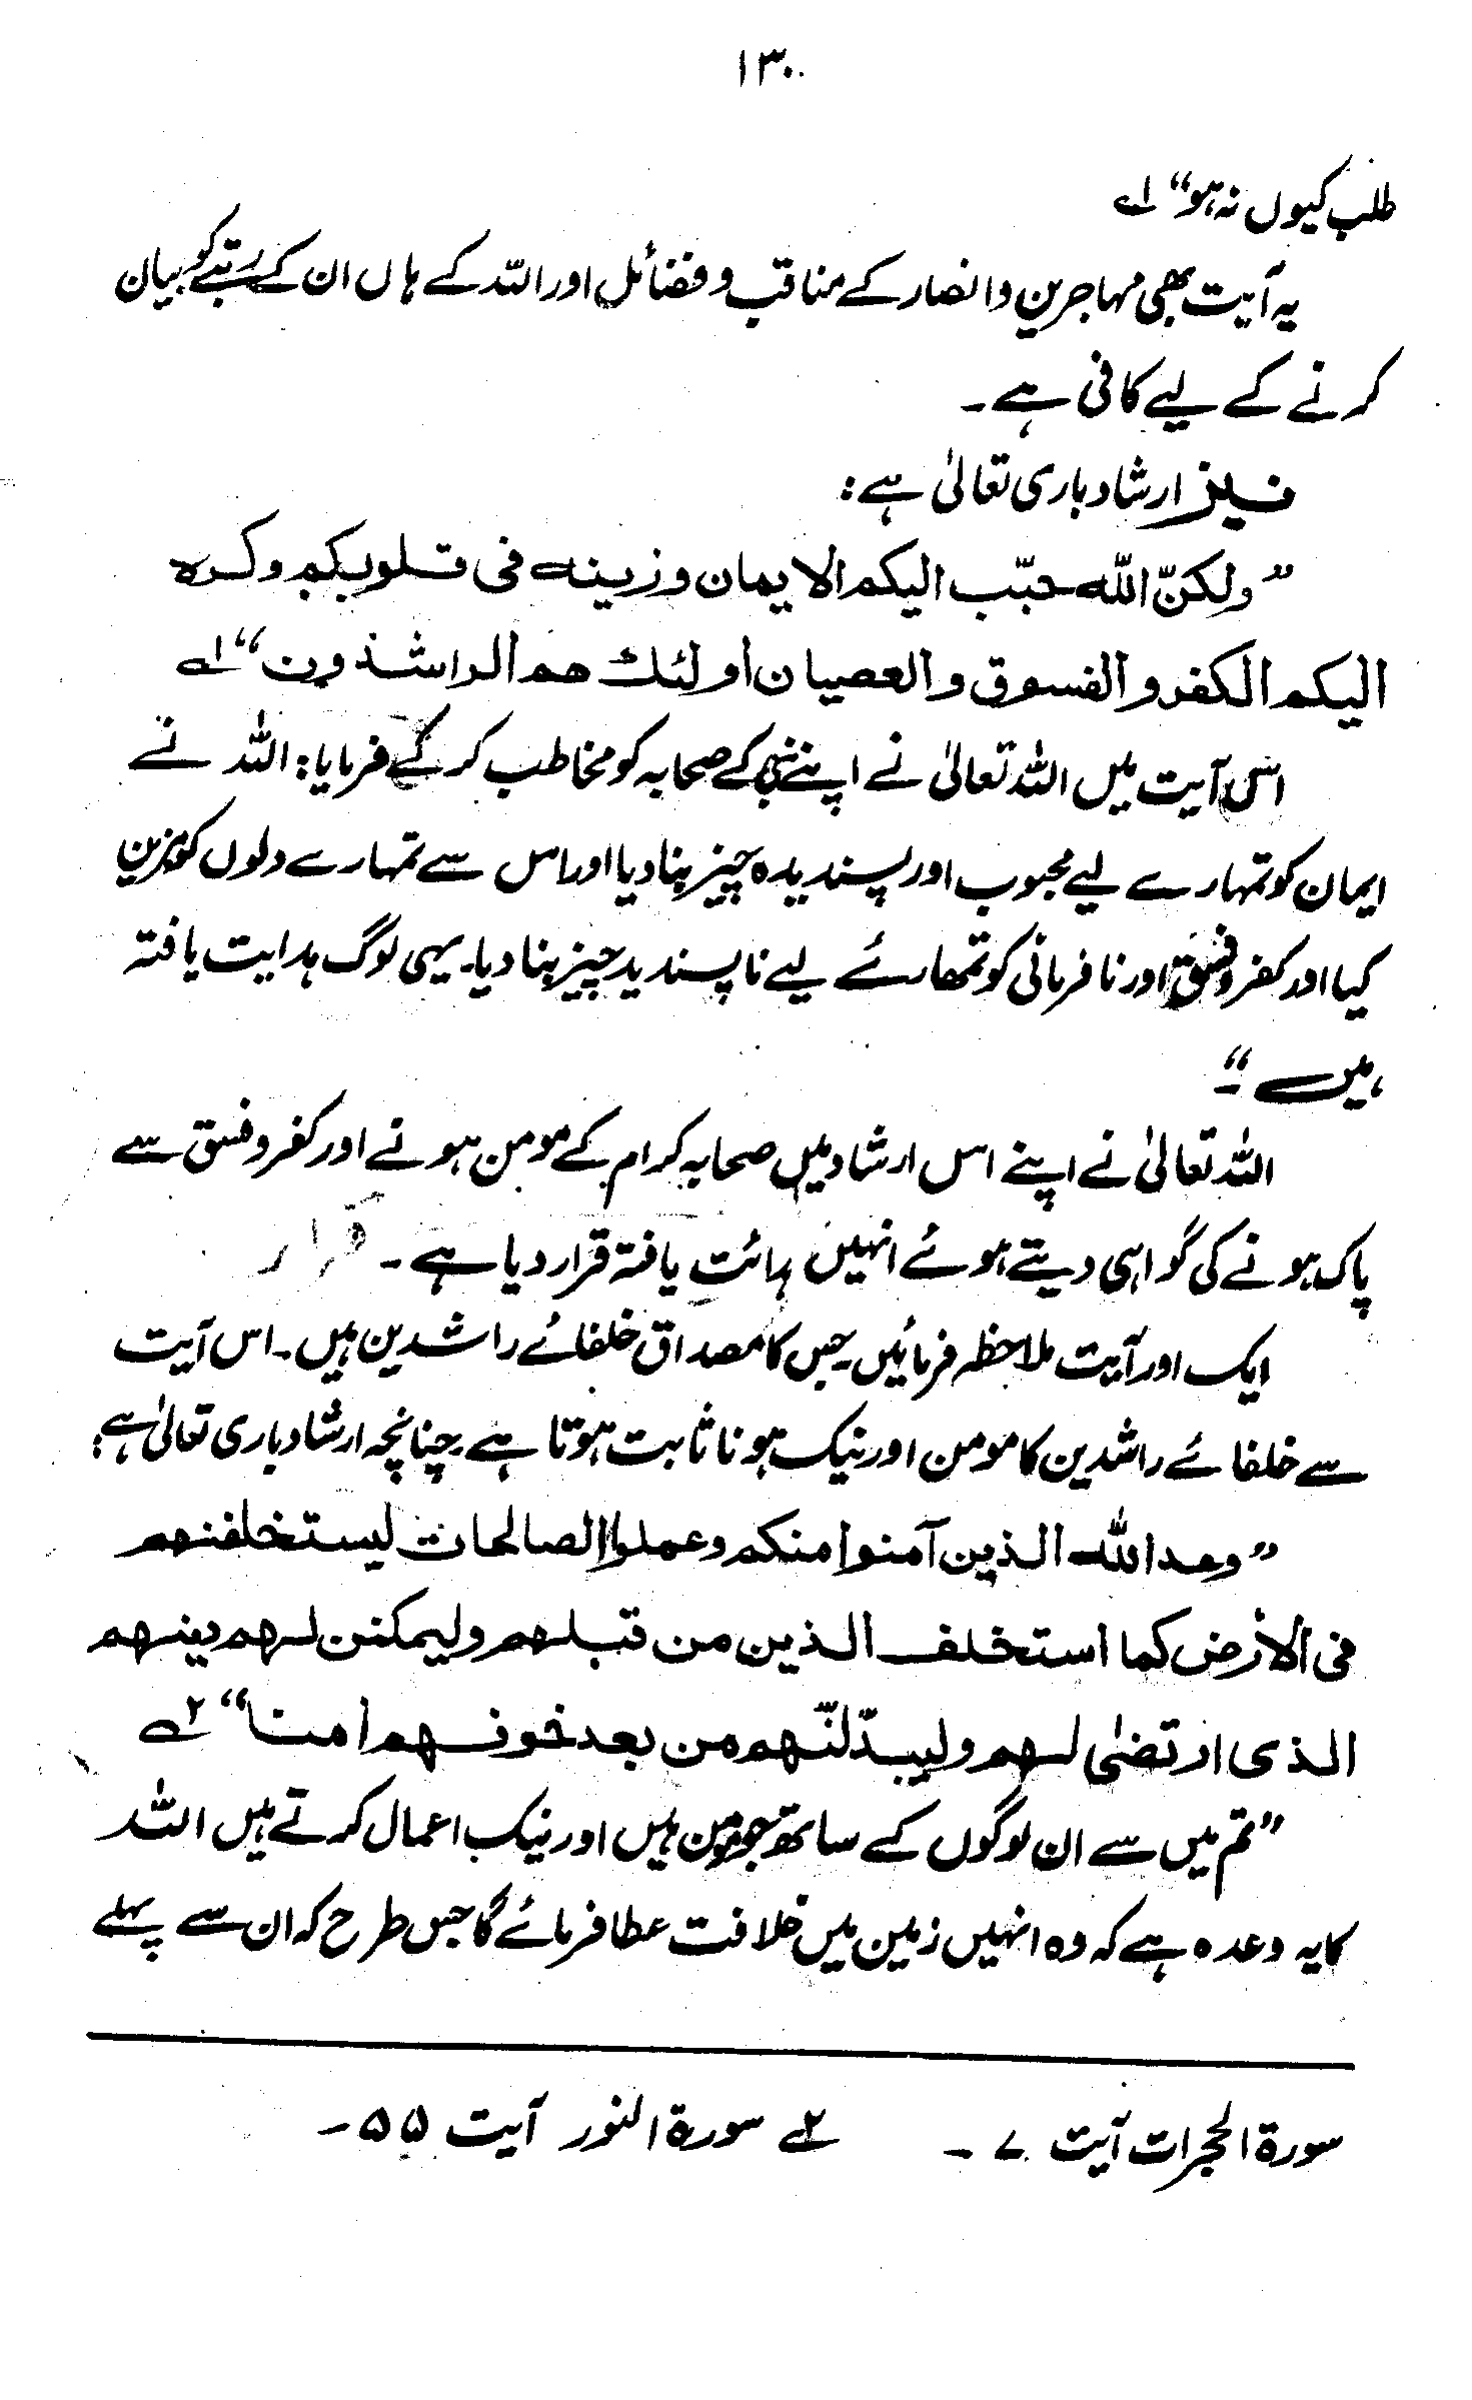 ۱۳۰
طلب کیوں نہ ہو“ ؂۱
یہ آیت بھی مہاجرین وانصار کے مناقب و فضائل اور اللّٰہ کے ہاں ان کے رتبے کو بیان
کرنے کے لیے کافی ہے۔
نیز ارشاد باری تعالیٰ ہے:
”ولکنّ اللّٰہ حبّب الیکم الایمان وزینہ فی قلوبکم وکرہ
الیکم الکفر والفسوق والعصیان اولئک ھم الراشذون“ ؂۱
اس آیت میں اللّٰہ تعالیٰ نے اپنے نبی کے صحابہ کو مخاطب کر کے فرمایا: اللّٰہ نے
ایمان کو تمہارے لیے محبوب اور پسندیدہ چیز بنا دیا اور اس سے تمہارے دلوں کو مزین
کیا اور کفر و فسق اور نافرمانی کو تمھارے لیے ناپسندید چیز بنا دیا۔ یہی لوگ ہدایت یافتہ
ہیں“۔
اللّٰہ تعالیٰ نے اپنے اس ارشاد میں صحابہ کرام کے مومن ہونے اور کفر و فسق سے
پاک ہونے کی گواہی دیتے ہوئے انہیں ہائت یافتہ قرار دیا ہے۔ قرار
ایک اور آیت ملاحظہ فرمائیں۔ جس کا مصداق خلفائے راشدین ہیں۔ اس آیت
سے خلفائے راشدین کا مومن اور نیک ہونا ثابت ہوتا ہے۔ چنانچہ ارشاد باری تعالیٰ ہے:
”وعد اللّٰہ الذین آمنوا منکم وعملوا الصالحات لیستخلفنھم
فی الأرض کما استخلف الذین من قبلھم ولیمکنن لھم دینھم
الذی ارتضیٰ لھم ولیبدّلنّھم من بعد خوفھم أمنا“ ؂۲
”تم میں سے ان لوگوں کے ساتھ جو مومن ہیں اور نیک اعمال کرتے ہیں اللّٰہ
کا یہ وعدہ ہے کہ وہ انہیں زمین میں خلافت عطا فرمائے گا جس طرح کہ ان سے پہلے
سورۃ الحجرات آیت ۷۔ ؂۲ سورۃ النور آیت ۵۵۔